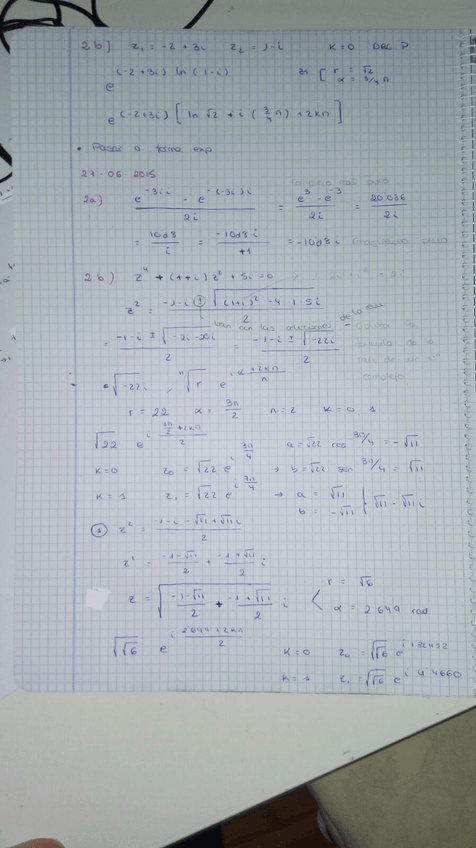 2b) z₁ = -2 + 3i z₂ = 1-i k=0 DRL P
e^(-2+3i) ln(1-i) [ r = √2 α = 3/4 π
e^(-2+3i) [ ln √2 + i ( 3/4 π) + 2kπ ]
• Pasar a forma exp
27-06-2015
2a) (e^(-3i·i) - e^(-(-3i)i)) / 2i = (e^3 - e^-3) / 2i = 20'036 / 2i
= 10'018 / i = -10'018 i / +1 = -10'018 i imaginario puro
2b) z⁴ + (1+i) z² + 5i = 0
z² = (-1-i ± √((1+i)² - 4 · 5i)) / 2
= (-1-i ± √(2i-20i)) / 2 = (-1-i ± √(-22i)) / 2
• √(-22i) , ⁿ√r e^(i (α+2kπ)/n)
r = 22 α = 3π/2 n = 2 k = 0, 1
√22 e^(i (3π/2 + 2kπ)/2) a = √22 cos 3π/4 = -√11
k=0 z₀ = √22 e^(i 3π/4) → b = √22 sen 3π/4 = √11
k=1 z₁ = √22 e^(i 7π/4) → a = √11 b = -√11 } √11 - √11 i
① z² = (-1-i -√11+√11i) / 2
z² = (-1-√11)/2 + (-1+√11)/2 i
z = √((-1-√11)/2 + (-1+√11)/2 i) < r = √6 α = 2'649 rad
√√6 e^(i (2'649+2kπ)/2) k=0 z₀ = √√6 e^(i 1'32452)
k=1 z₁ = √√6 e^(i 4'4660)